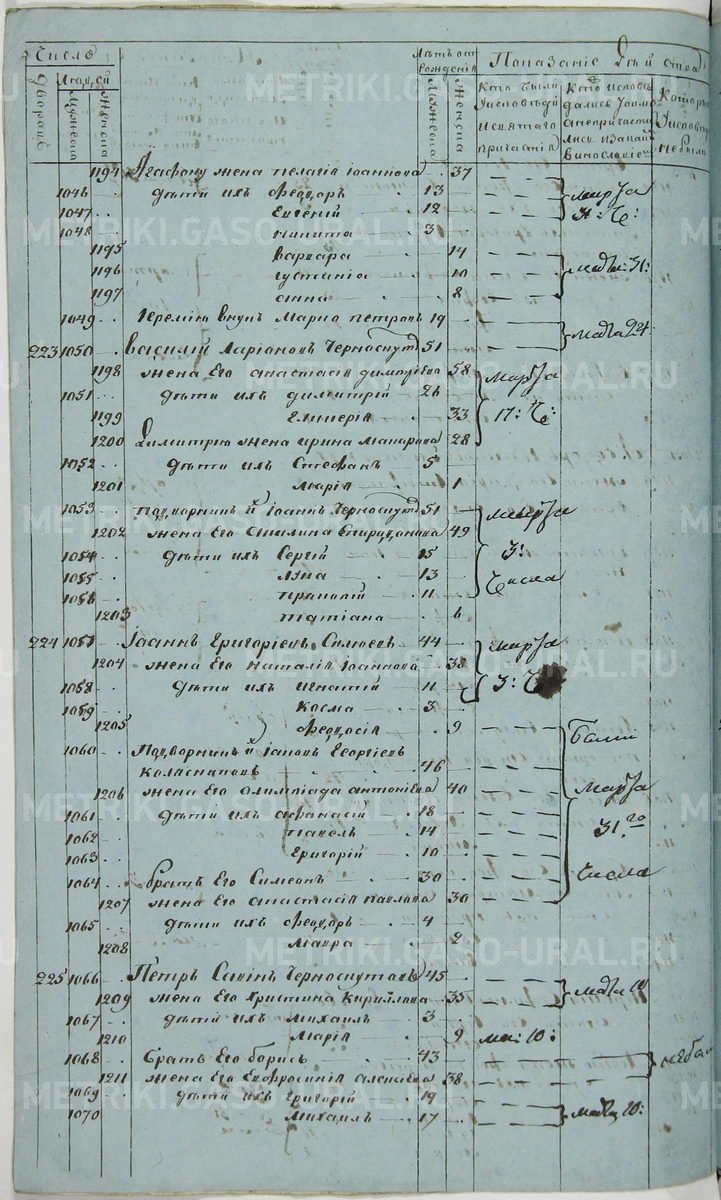 Число
Лѣтъ отъ рожденія
Показаніе Дѣй
Дворовъ
Людей
Мужеска
Женска
Мужеска
Женска
Кто были
Исповѣди
и святаго
причастія
Кто исповѣ
дался
а не причасти
лись
винословіемъ
Которы
Исповѣди
не была
1194 Агафону жена Пелагія Іоаннова 37
1046 дѣти ихъ Феодоръ 13
1047 Евгеній 12
1048 Никита 3
марта
31: Ч:
1195 Варвара 14
1196 Густанія 10
1197 Анна 8
31:
1049 Іереміи внукъ Марко Петровъ 19
24:
223 1050 Василій Ларіоновъ Черноскутовъ 51
1198 жена Его Анастасія Димитріева 58
1051 дѣти ихъ Димитрій 26
1199 Гликерія 33
1200 Димитрію жена Ирина Макарова 28
Марта
17: Ч:
1052 дѣти ихъ Стефанъ 5
1201 Марія 1
1053 Подворникъ й Іоаннъ Черноскутовъ 51
1202 жена Его Акилина Спиридонова 49
1054 дѣти ихъ Сергій 15
1055 13
1056 11
1203 Татіана 6
Марта
3:
Числа
224 1057 Іоаннъ Григоріевъ 44
1204 жена Его Наталія Іоаннова 38
1058 дѣти ихъ Игнатій 11
1059 Косма 3
1205 Феодосія 9
марта
3: Ч
1060 Подворникъ й Георгіевъ
46
1206 жена Его Олимпіада Антоніева 40
1061 дѣти ихъ Афанасій 18
1062 Павелъ 14
1063 Григорій 10
1064 братъ Его Симеонъ 30
1207 жена Его Анастасія Павлова 30
Были
Марта
31.го
Числа
1065 дѣти ихъ Феодоръ 4
1208 Мавра 2
225 1066 Петръ Савинъ Черноскутовъ 45
1209 жена Его Христина Кириллова 35
10
1067 дѣти ихъ Михаилъ 3
1210 Марія 9 10:
1068 Братъ Его Борисъ 43
1211 жена Его Евфросинія Алексіева 38
небы
1069 дѣти ихъ Григорій 19
1070 Михаилъ 17
10:
METRIKI.GASO-URAL.RU